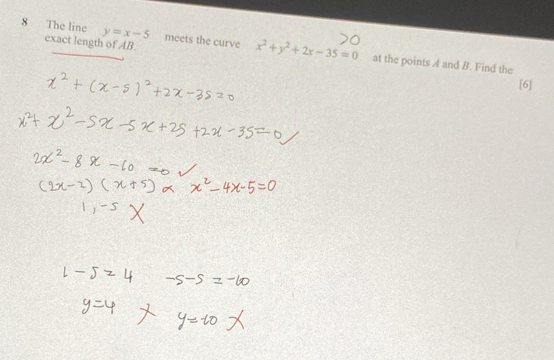 8 The line y = x − 5 meets the curve x² + y² + 2x − 35 = 0 at the points A and B. Find the
>0
exact length of AB.
[6]
x² + (x-5)² + 2x - 35 = 0
x² + x² - 5x - 5x + 25 + 2x - 35 = 0 ✓
2x² - 8x - 10 = 0 ✓
(2x-2) (x+5) x² - 4x - 5 = 0
1, -5 X
1 - 5 = 4 -5 - 5 = -10
y = 4 X y = -10 X